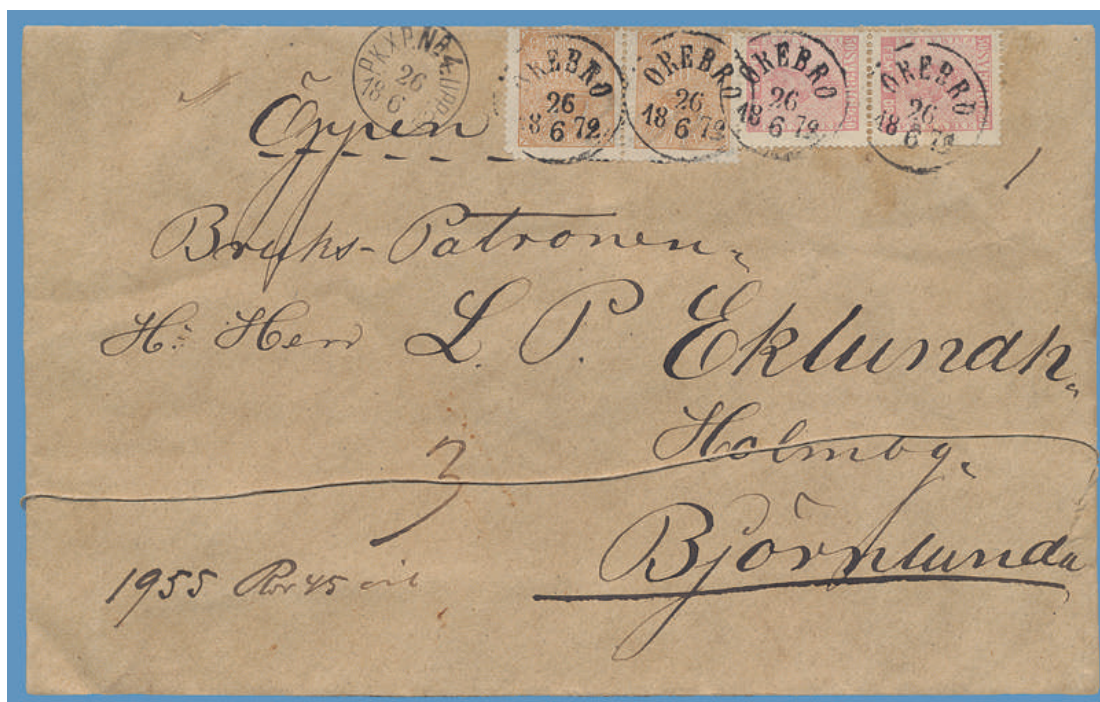 PKXP.Nr4.UPP
26
18 6
ÖREBRO
26
18 6 72
ÖREBRO
26
18 6 72
ÖREBRO
26
18 6 72
ÖREBRO
26
18 6 72
Öppen
Bruks-Patronen
H: Herr L. P. Eklundh
Holmby
Björnlunda
3
1955